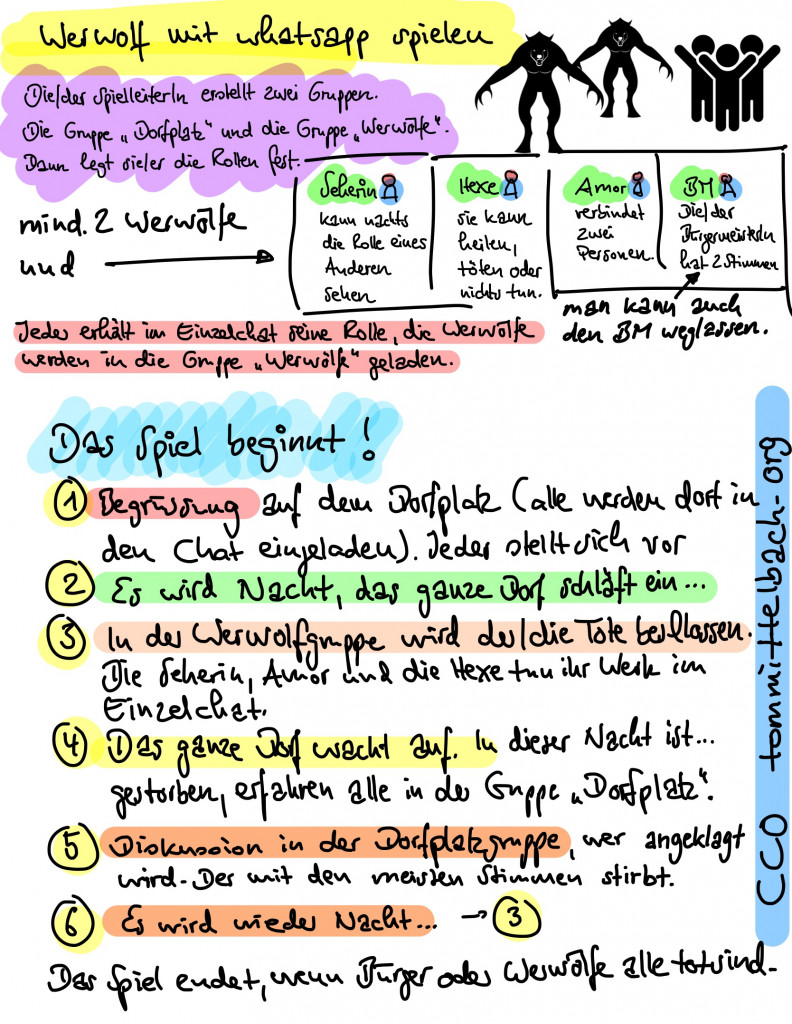 Werwolf mit whatsapp spielen
Die/der SpielleiterIn erstellt zwei Gruppen.
Die Gruppe „Dorfplatz" und die Gruppe „Werwölfe".
Dann legt sie/er die Rollen fest.
mind. 2 Werwölfe
und
Seherin
kann nachts
die Rolle eines
Anderen
sehen
Hexe
sie kann
heilen,
töten oder
nichts tun.
Amor
verbindet
zwei
Personen.
BM
Die/der
BürgermeisterIn
hat 2 Stimmen
man kann auch
den BM weglassen.
Jeder erhält im Einzelchat seine Rolle, die Werwölfe
werden in die Gruppe „Werwölfe" geladen.
Das Spiel beginnt!
1 Begrüssung auf dem Dorfplatz (alle werden dort in
den Chat eingeladen). Jeder stellt sich vor
2 Es wird Nacht, das ganze Dorf schläft ein...
3 In der Werwolfgruppe wird der/die Tote beschlossen.
Die Seherin, Amor und die Hexe tun ihr Werk im
Einzelchat.
4 Das ganze Dorf wacht auf. In dieser Nacht ist...
gestorben, erfahren alle in der Gruppe „Dorfplatz".
5 Diskussion in der Dorfplatzgruppe, wer angeklagt
wird. Der mit den meisten Stimmen stirbt.
6 Es wird wieder Nacht... → 3
Das Spiel endet, wenn Bürger oder Werwölfe alle tot sind.
CC0 tommimittelbach.org